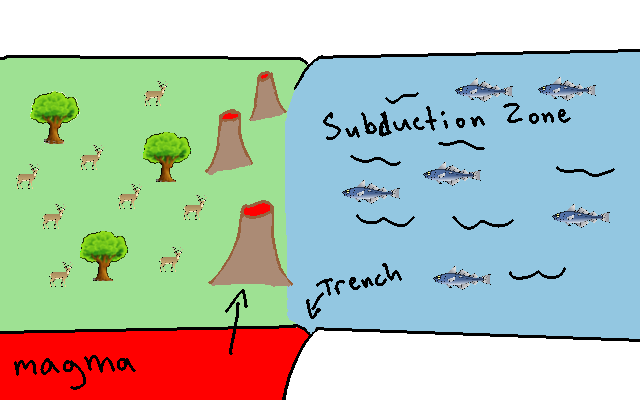 Subduction Zone
Trench
magma